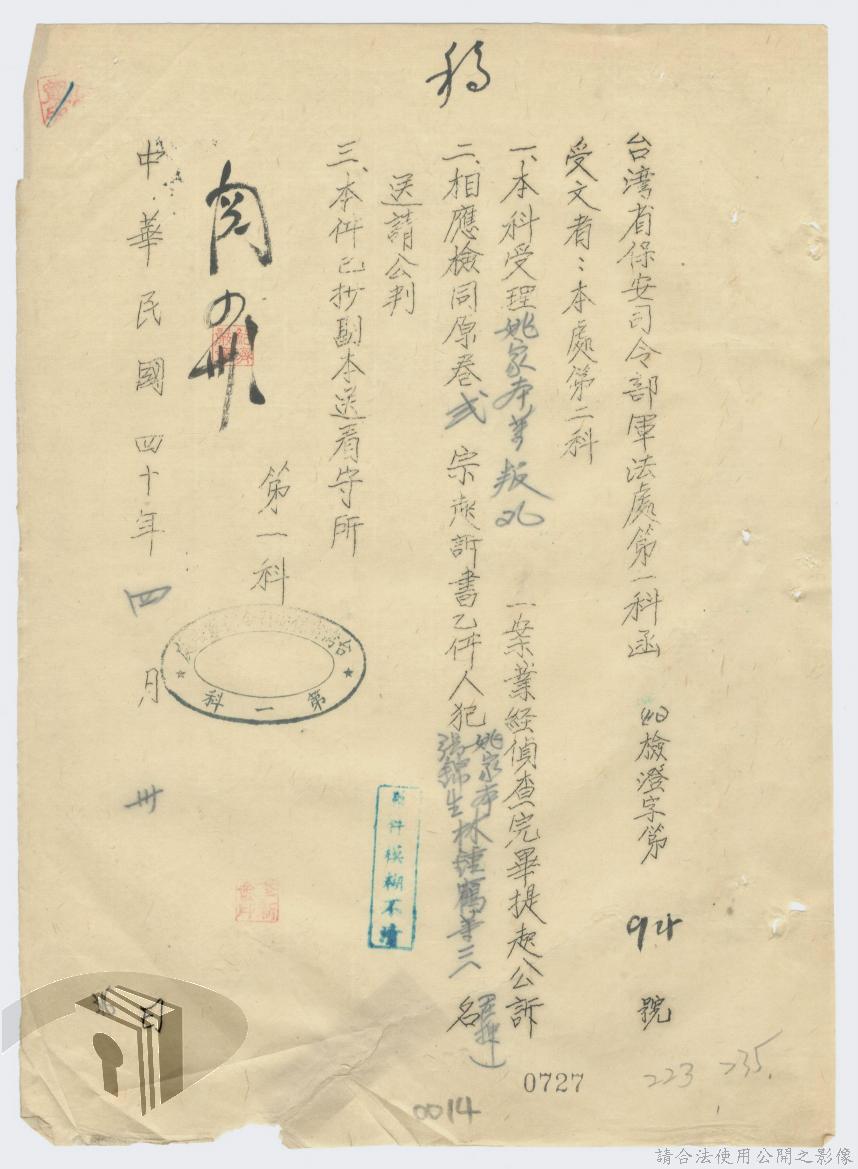 稿
台湾省保安司令部軍法處第一科函 (40)檢澄字第 94 號
受文者：本處第二科
一、本科受理姚家本等叛乱 一案業経偵查完畢提起公訴
二、相應檢同原卷弍宗起訴書乙件人犯姚家本張錦生林鍾鶴等三名
送請公判
三、本件已抄副本送看守所
第一科
中華民國 四十年 四月 卅
第一科
原件模糊不清
0727
223 235
0014
請合法使用公開之影像